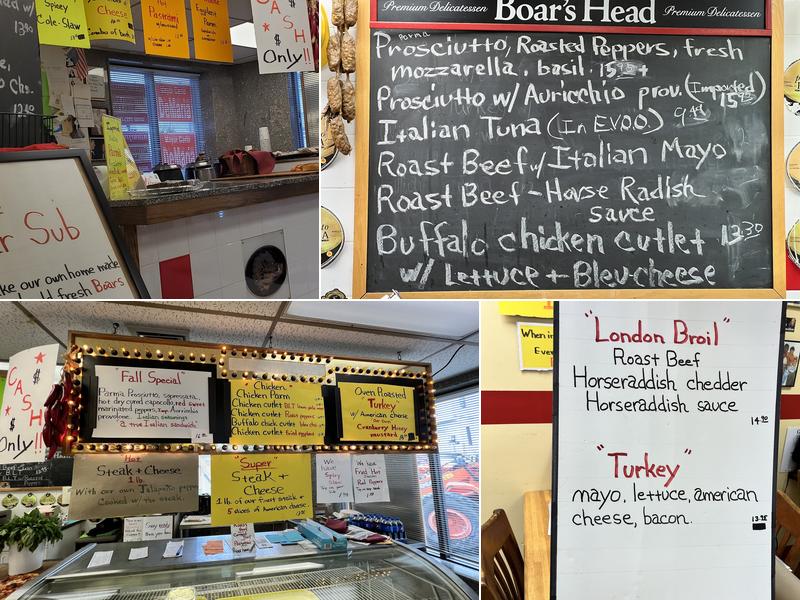 Spicy
Cole-Slaw
Cheese
Hot
Pastrami
CASH
$
Only!!
13.90
Chs.
12.40
r Sub
ke our own home made
fresh Boars
Premium Delicatessen Boar's Head Premium Delicatessen
Parma
Prosciutto, Roasted Peppers, fresh
mozzarella, basil. 15
Prosciutto w/ Auricchio prov. (Imported)
Italian Tuna (In EVOO) 9
Roast Beef w/ Italian Mayo
Roast Beef - Horse Radish
sauce
Buffalo chicken cutlet 13.30
w/ Lettuce + Bleu-cheese
CASH
$
Only!!
"Fall Special"
Parma Prosciutto, sopressata,
hot dry cured capacollo, red sweet
marinated peppers, Imp. Auricchio
provolone. Italian seasonings
a true Italian sandwich
"Chicken"
Chicken Parm
Chicken cutlet
Chicken cutlet Roast peppers
Buffalo chick cutlet
Chicken cutlet
Oven Roasted
Turkey
w/ American cheese
Cranberry Honey
mustard
Hot
Steak + Cheese
1 lb.
With our own Jalapeño peppers
Cooked w/ the steak.
"Super"
Steak +
Cheese
1 lb of our fresh steak +
5 slices of American cheese
We
have
Spicy
Slaw
We have
Fried Hot
Red Peppers
When in
Ever
"London Broil"
Roast Beef
Horseraddish chedder
Horseraddish sauce
14.90
"Turkey"
mayo, lettuce, american
cheese, bacon.
13.95